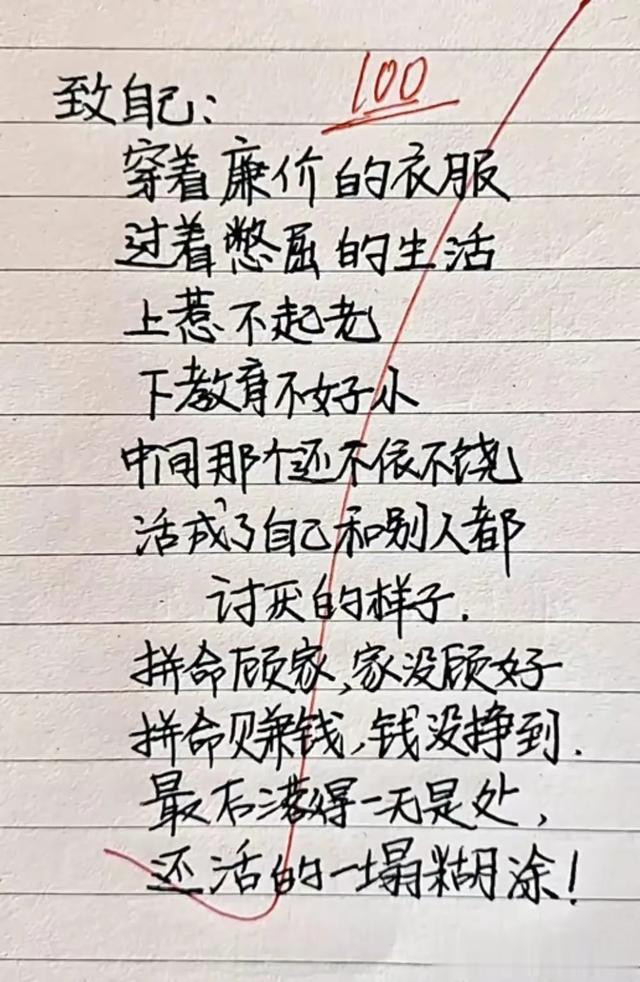 100
致自己：
穿着廉价的衣服
过着憋屈的生活
上惹不起老
下教育不好小
中间那个还不依不饶
活成了自己和别人都
讨厌的样子.
拼命顾家,家没顾好
拼命赚钱,钱没挣到.
最后落得一无是处,
还活的一塌糊涂!